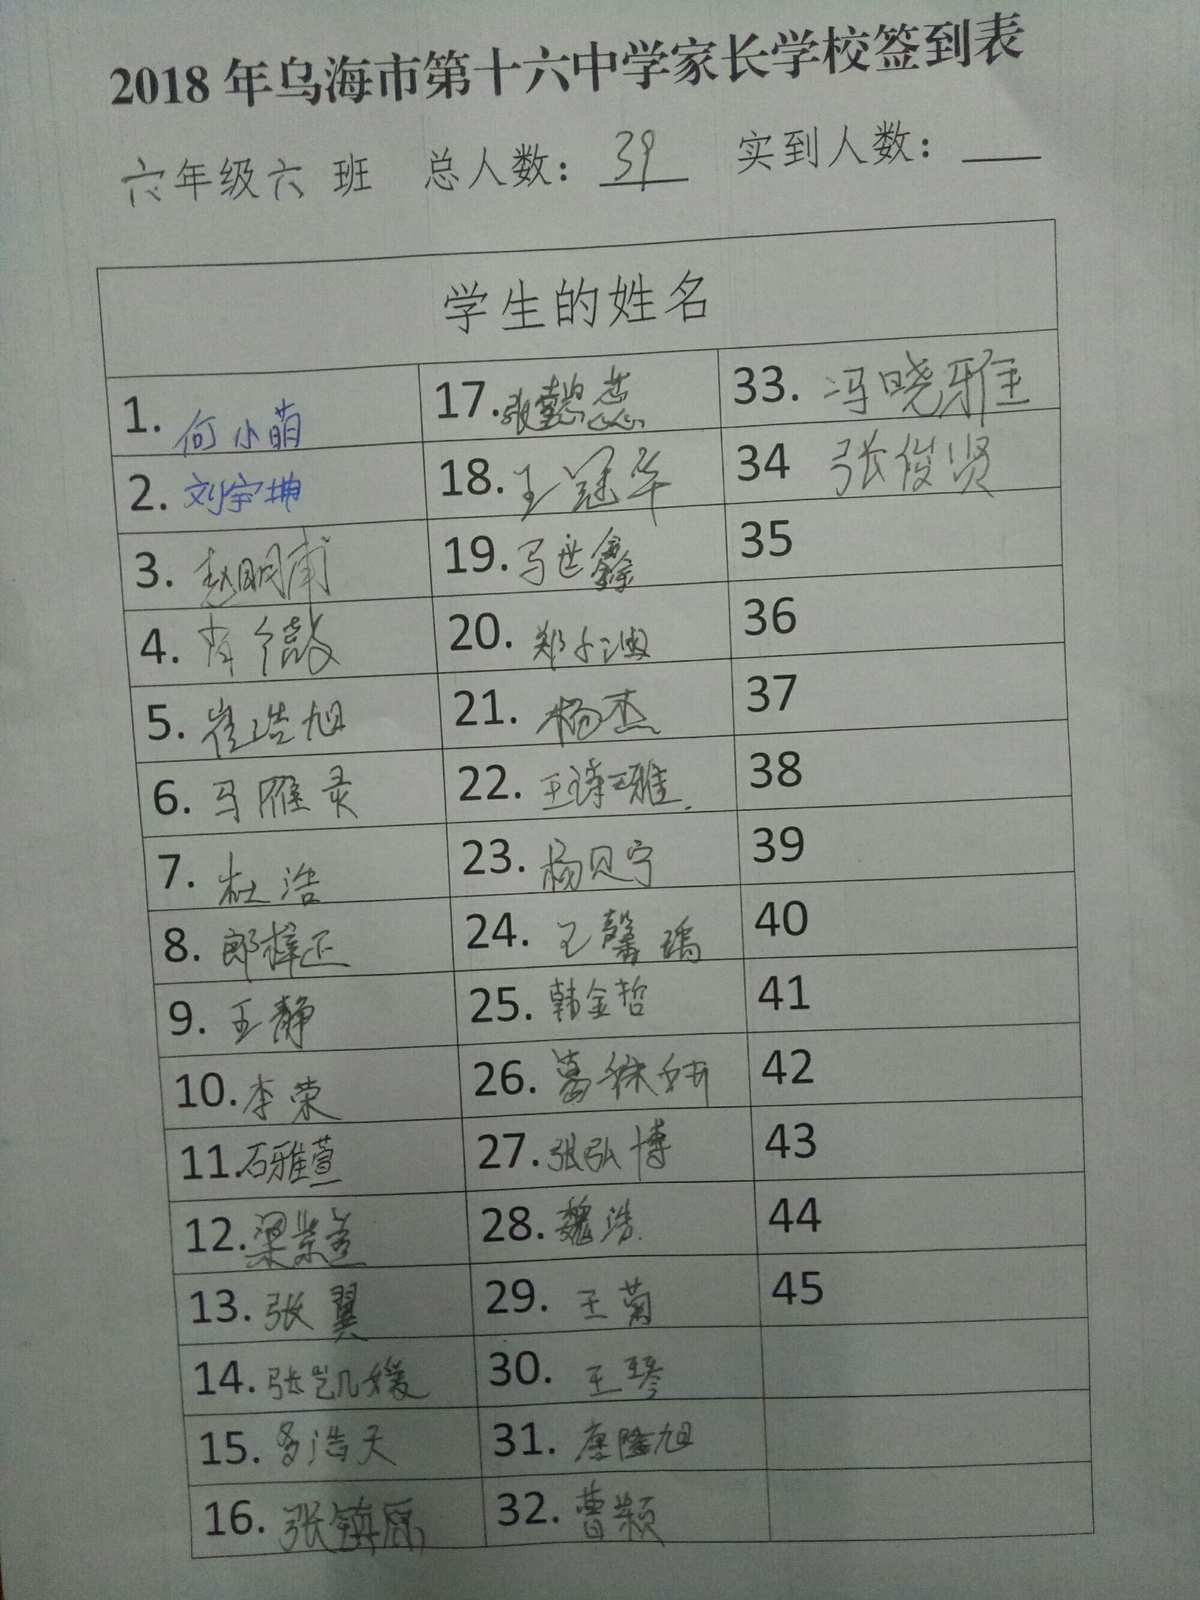 2018 年乌海市第十六中学家长学校签到表
六年级六 班 总人数： 39 实到人数：
学生的姓名
1. 何小萌
2. 刘宇坤
3. 赵明甫
4.
5. 崔浩旭
6. 马雁灵
7. 杜浩
8. 郎梓正
9. 王静
10. 李荣
11. 石雅萱
12. 梁紫
13. 张翼
14. 张凯媛
15. 浩天
16. 张镇原
17. 张懿蕊
18. 王冠华
19. 马世鑫
20. 郑
21. 杨杰
22. 王
23. 杨贝宁
24. 王馨瑀
25. 韩金哲
26. 葛
27. 张弘博
28. 魏浩
29. 王菊
30. 王琴
31. 康隆旭
32. 曹颖
33. 冯晓雅
34 张俊贤
35
36
37
38
39
40
41
42
43
44
45